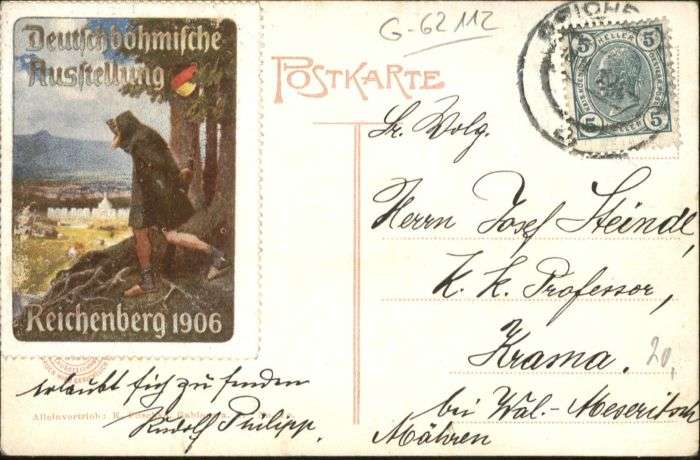 Deutschböhmische
Ausstellung
Reichenberg 1906
G-62112
POSTKARTE
5 HELLER 5
5 5
Sr. Wolg.
Herrn Josef Steindl,
K. k. Professor,
Krasna.
20,
bei Wal.-Meseritsch
Mähren
erlaubt sich zu senden
Rudolf Philipp.
Alleinvertrieb: